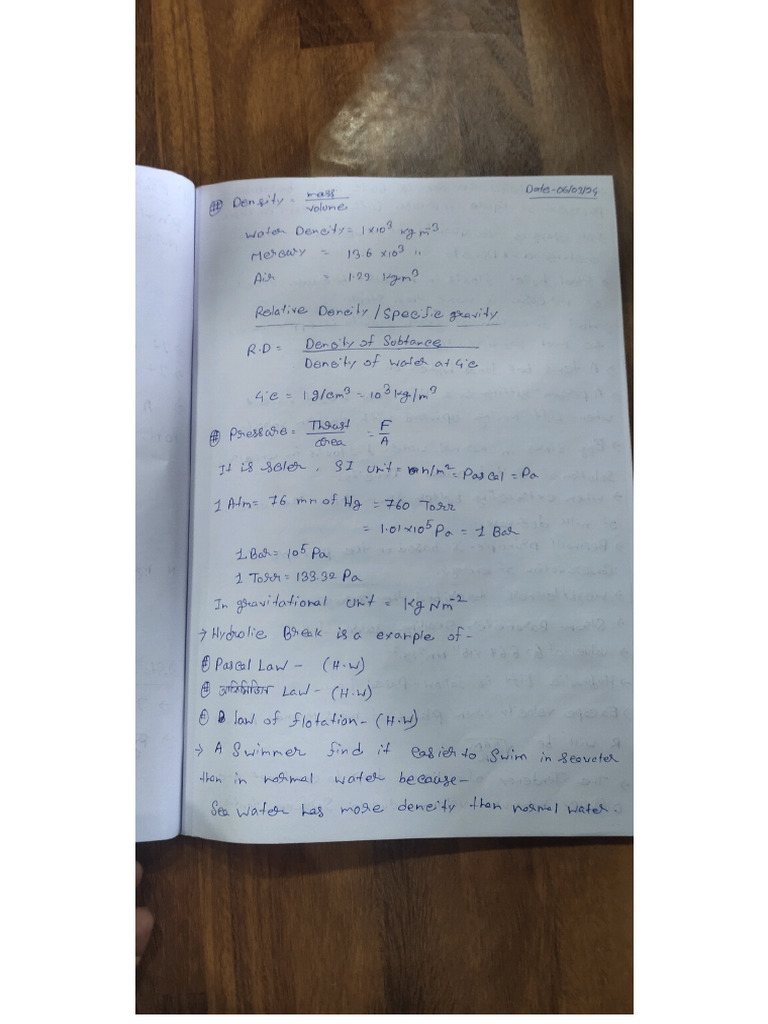 Date-06/03/24
# Density = mass / volume
Water Dencity = 1×10³ kg m⁻³
Mercury = 13.6 ×10³ "
Air = 1.29 kgm³
Relative Dencity / Specific gravity
R.D = Dencity of Subtance / Dencity of water at 4°c
4°c = 1 g/cm³ = 10³ kg/m³
# Pressure = Thrust / area = F / A
It is scler, SI unit = n/m² = Pascal = Pa
1 Atm = 76 mn of Hg = 760 Torr
= 1.01×10⁵ Pa = 1 Bar
1 Bar = 10⁵ Pa
1 Torr = 133.32 Pa
In gravitational unit = Kg Nm⁻²
→ Hydrolic Break is a example of-
# Pascal Law - (H.W)
# আর্কিমিডিস Law - (H.W)
# law of flotation - (H.W)
→ A Swimmer find it easier to swim in seawater
than in normal water because-
Sea water has more dencity than normal water.